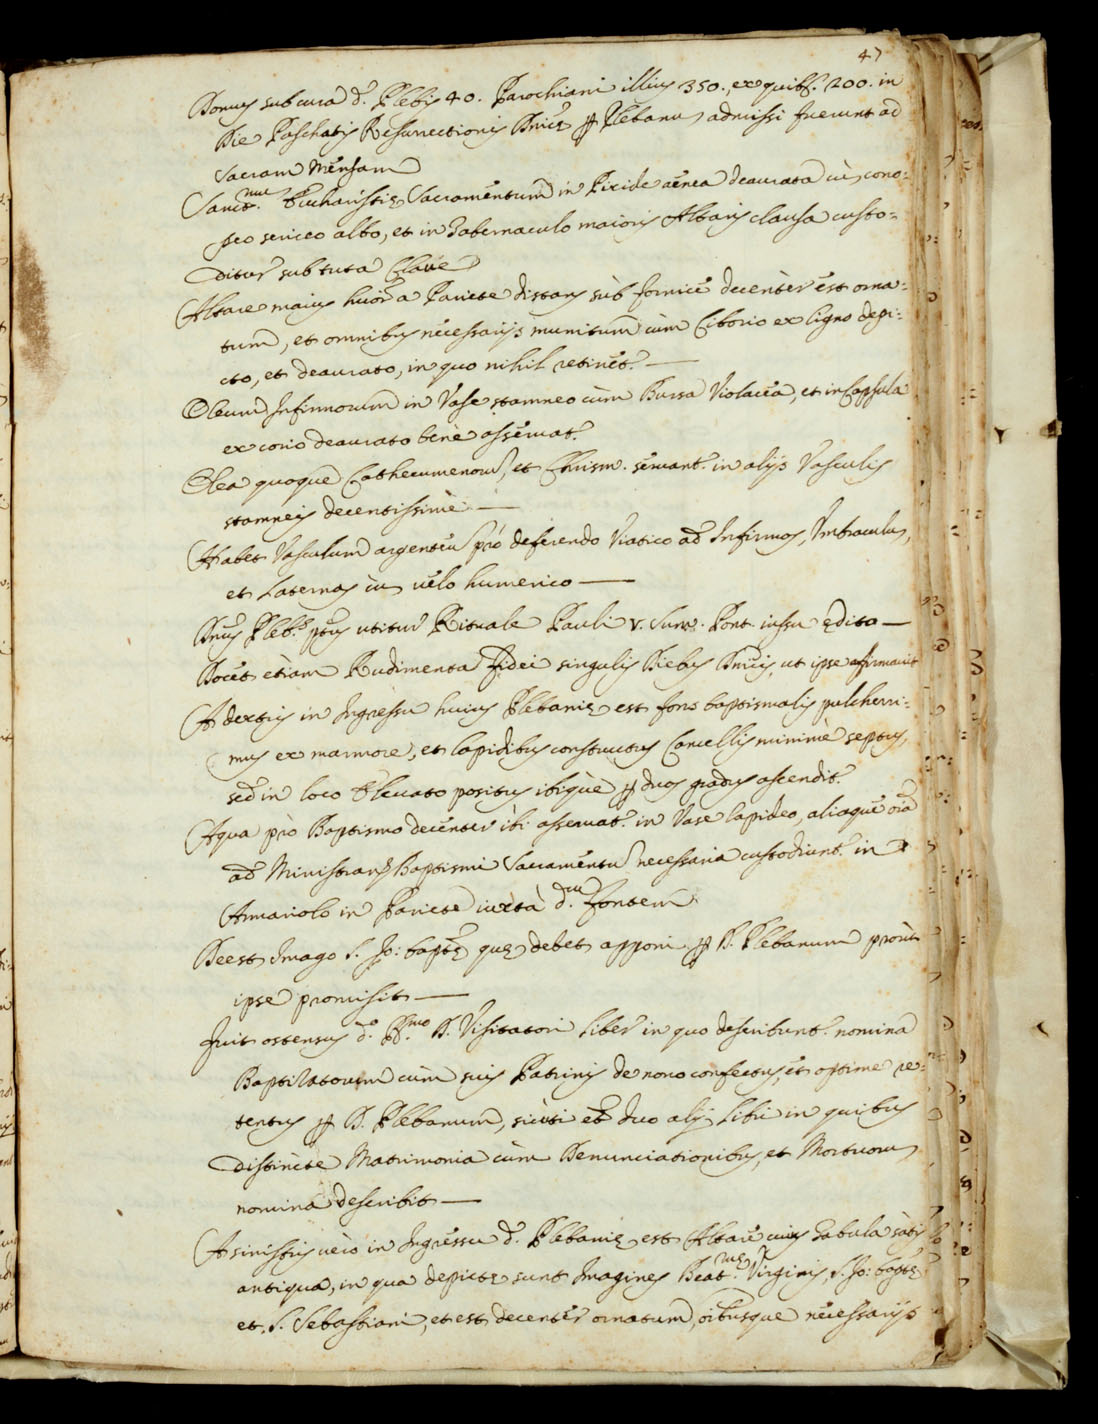 47
Domus sub cura d. Plebis 40. Parochiani illius 350., ex quib.s 200. in
Die Paschatis Resurrectionis Dnicę p Plebanu admissi fuerunt ad
sacram Mensam
Sanct.mue Eucharistię Sacramentum in Pixide aenea deaurata cù cono=
peo sericeo albo, et in Tabernaculo maioris Altaris clausa custo=
ditur sub tuta Claue
Altare maius huior a Pariete distans sub fornice decenter est orna=
tum, et omnibus necessarijs munitum cùm Ciborio ex ligno depi=
cto, et deaurato, in quo nihil retinet.r —
Oleum Infirmorum in Vase stamneo cùm Bursa Violacea, et in Capsula
ex corio deaurato bene asseruat.r
Olea quoque Cathecumenoru, et Chrism. seruant.r in alijs Vasculis
stamneis decentissimè —
Habet Vasculum argenteu prò deferendo Viatico ad Infirmos, Umbraculu,
et Laternas cu uelo humerico —
Dnus Pleb.s ptus utitur Rituale Pauli V. Sum. Pont. iussu ędito —
Docet etiam Rudimenta Fidei singulis Diebus Dnicis, ut ipse afirmauit
A dextris in Ingressu huius Plebanię est fons baptismalis pulcherri=
mus ex marmore, et lapidibus constructus Cancellis minimè septus,
sed in loco Eleuato positus ibique p duos gradus ascendit.r
Aqua prò Baptismo decenter ibi asseruat.r in Vase lapideo, aliaque oia
ad Ministrand Baptismi Sacramentu necessaria custodiunt.r in
Armariolo in Pariete iuxta d.um Fontem
Deest Imago S. Jo: baptę quę debet apponi p D. Plebanum prout
ipse promisit —
Fuit ostensus d.o R.mo D. Visitatori Liber in quo describunt.r nomina
Baptizatorum cùm suis Patrinis de nouo confectus, et optime re=
tentus p D. Plebanum, sicuti et duo alij Libri in quibus
distincte Matrimonia cùm Denunciationibus, et Mortuoru
nomina describit —
A sinistris uerò in Ingressu d. Plebanię est Altare cuius Tabula satis
antiqua, in qua depictę sunt Imagines Beat.mę Virginis, S. Jo: baptę
et S. Sebastiani, et est decenter ornatum, oibusque necessarijs